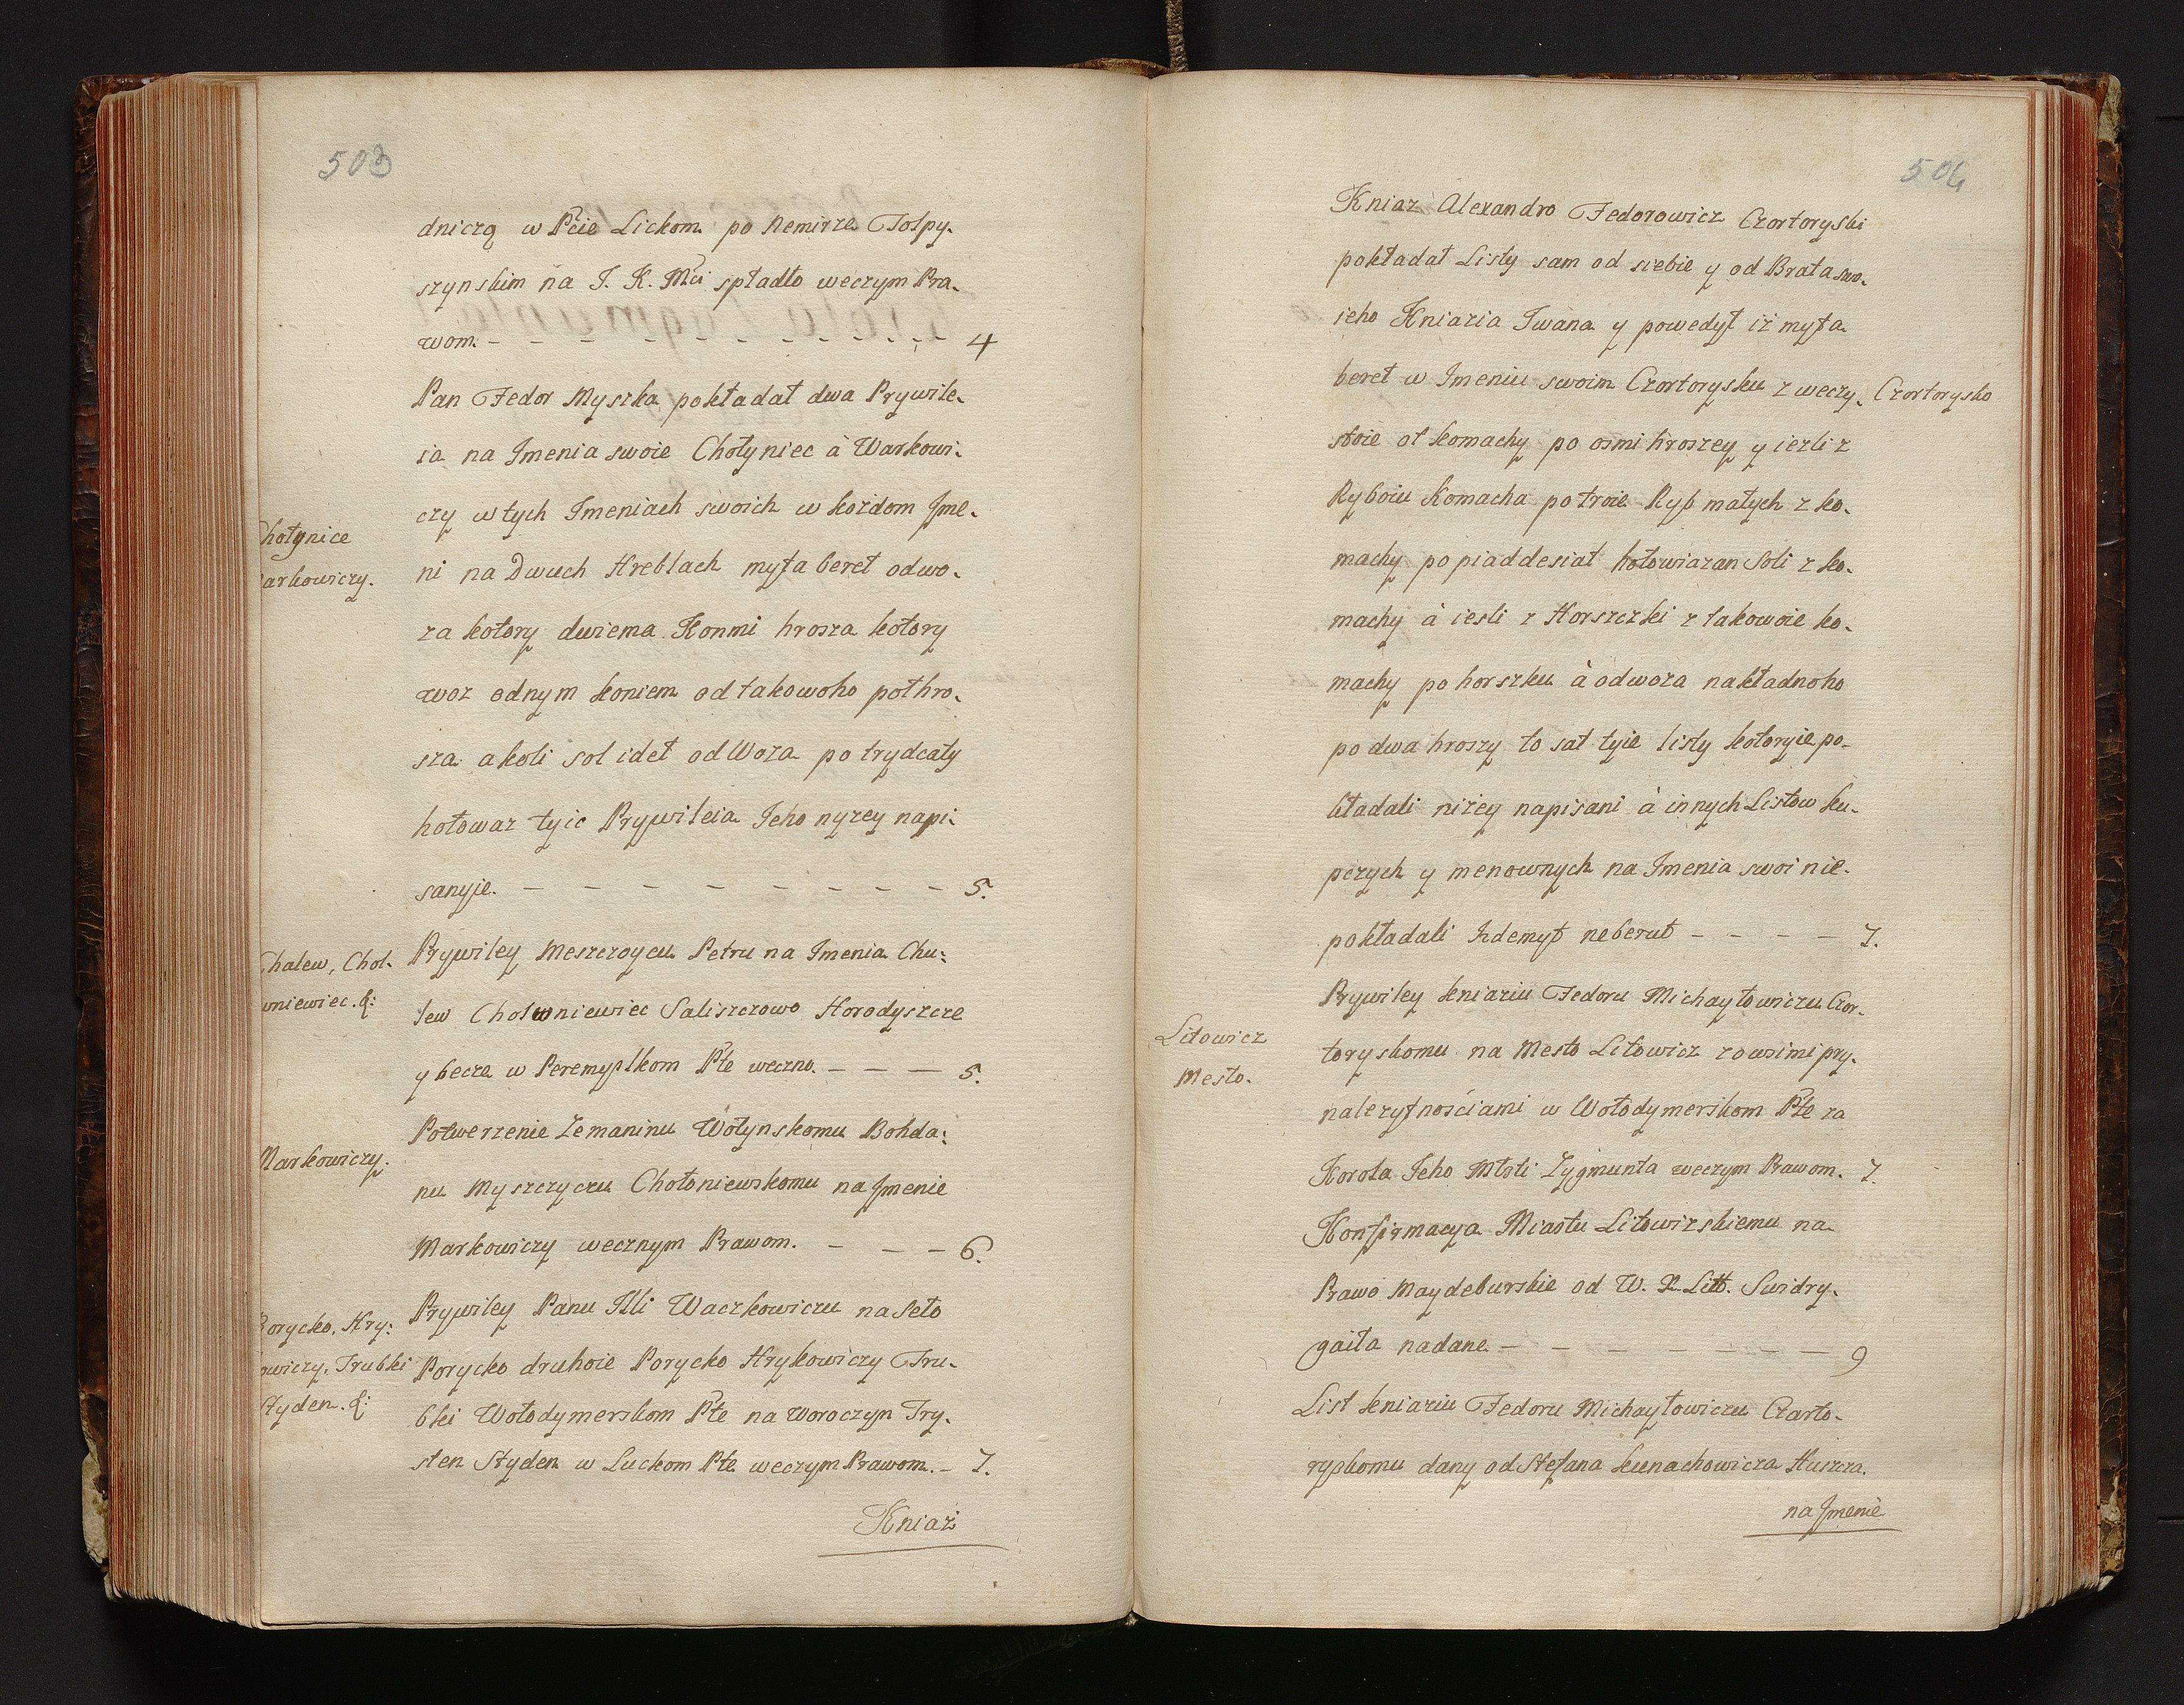 503
dniczą w Pcie Lickom po Nemirze Tołpy-
szynskim na J. K. Mci spładło weczym Pra-
wom. - - - - - - - - - - - - 4
Pan Fedor Myszka pokładał dwa Prywile-
ia na Jmenia swoie Chołyniec à Warkowi-
czy w tych Jmeniach swoich w kożdom Jme-
Chołynice
ni na Dwuch Hreblach myta beret odwo-
arkowiczy.
za kotory dwiema Konmi hrosza kotory
woz odnym koniem od takowoho pothro-
sza a koli sol idet od Woza po trydcaty
hołowaz tyie Prywileia Jeho nyzey napi-
sanyje. - - - - - - - - 5.
Prywiley Meszczoycu Petru na Jmenia Chu-
Chalew, Choł-
wniewiec. &:
lew Chołwniewiec Saliszczowo Horodyszcze
y becza w Peremyslkom Pte weczno. - - - 5.
Potwerzenie Zemaninu Wołynskomu Bohda-
Markowiczy.
nu Myszczyczu Chołoniewskomu na Jmenie
Markowiczy wecznym Prawom. - - - 6.
Prywiley Panu Illi Waczkowiczu na Seło
Porycko, Hry-
owiczy, Trubki
Porycko druhoie Porycko Hrykowiczy Tru-
Styden. &:
bki Wołodymerskom Pte na Woroczyn Try-
sten Styden w Luckom Pte weczym Prawom. - 7.
Kniaż
504
Kniaz Alexandro Fedorowicz Czortoryski
pokładał Listy sam od siebie y od Brata swo-
ieho Kniazia Jwana y powedył iż myta
beret w Jmeniu swoim Czortorysku z weczy-
Czortorysko
stoie ot komachy po osmi hroszey y iezli z
Ryboiu Komacha po troie Ryb małych z ko-
machy po piaddesiat hołowiazan Soli z ko-
machy à iesli z Horszczki z takowoie ko-
machy po horszku à odwoza nakładnoho
po dwa hroszy to sat tyie listy kotoryie po-
kładali niżey napisani à innych Listow ku-
pczych y menownych na Jmenia swoi nie-
pokładali hdemyt neberut - - - - 7.
Prywiley kniaziu Fedoru Michayłowiczu Czor-
Litowicz
Mesto.
toryskomu na Mesto Litowicz zowsimi pry-
należytnościami w Wołodymerskom Pte za
Korola Jeho Młsti Zygmunta weczym Prawom. 7.
Konfirmacya Miastu Litowizskiemu na
Prawo Maydeburskie od W. X. Litt. Swidry-
gaiła nadane - - - - - - - 9
List kniaziu Fedoru Michayłowiczu Czarto-
ryskomu dany od Stefana kunachowicza Huszcza
na Jmenie